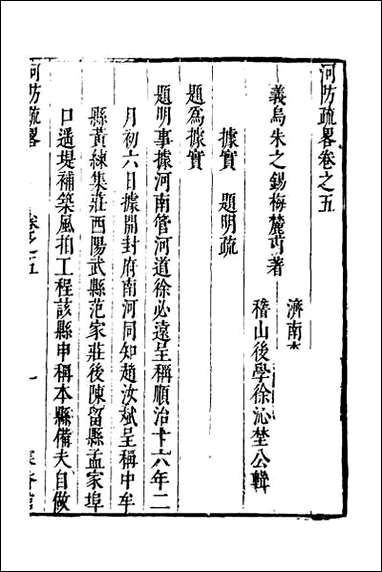 河防疏畧卷之五
濟南李
義烏朱之錫梅麓甫著
稽山後學徐沁埜公輯
據實　題明疏
題為據實
題明事據河南管河道徐必遠呈稱順治十六年二
月初六日據開封府南河同知趙汝斌呈稱中牟
縣黃練集莊西陽武縣范家莊後陳留縣孟家埠
口遥堤補築風拍工程該縣申稱本縣備夫自做
河防疏畧
卷之五
一